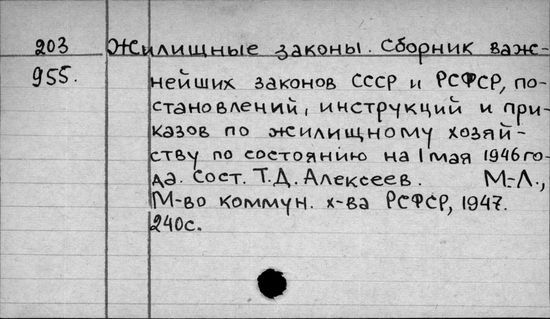 203 Жилищные законы. Сборник важ-
955. нейших законов СССР и РСФСР, по-
становлений, инструкций и при-
казов по жилищному хозяй-
ству по состоянию на 1 мая 1946 го-
да. Сост. Т.Д. Алексеев. М.-Л.,
М-во коммун. х-ва РСФСР, 1947.
240с.